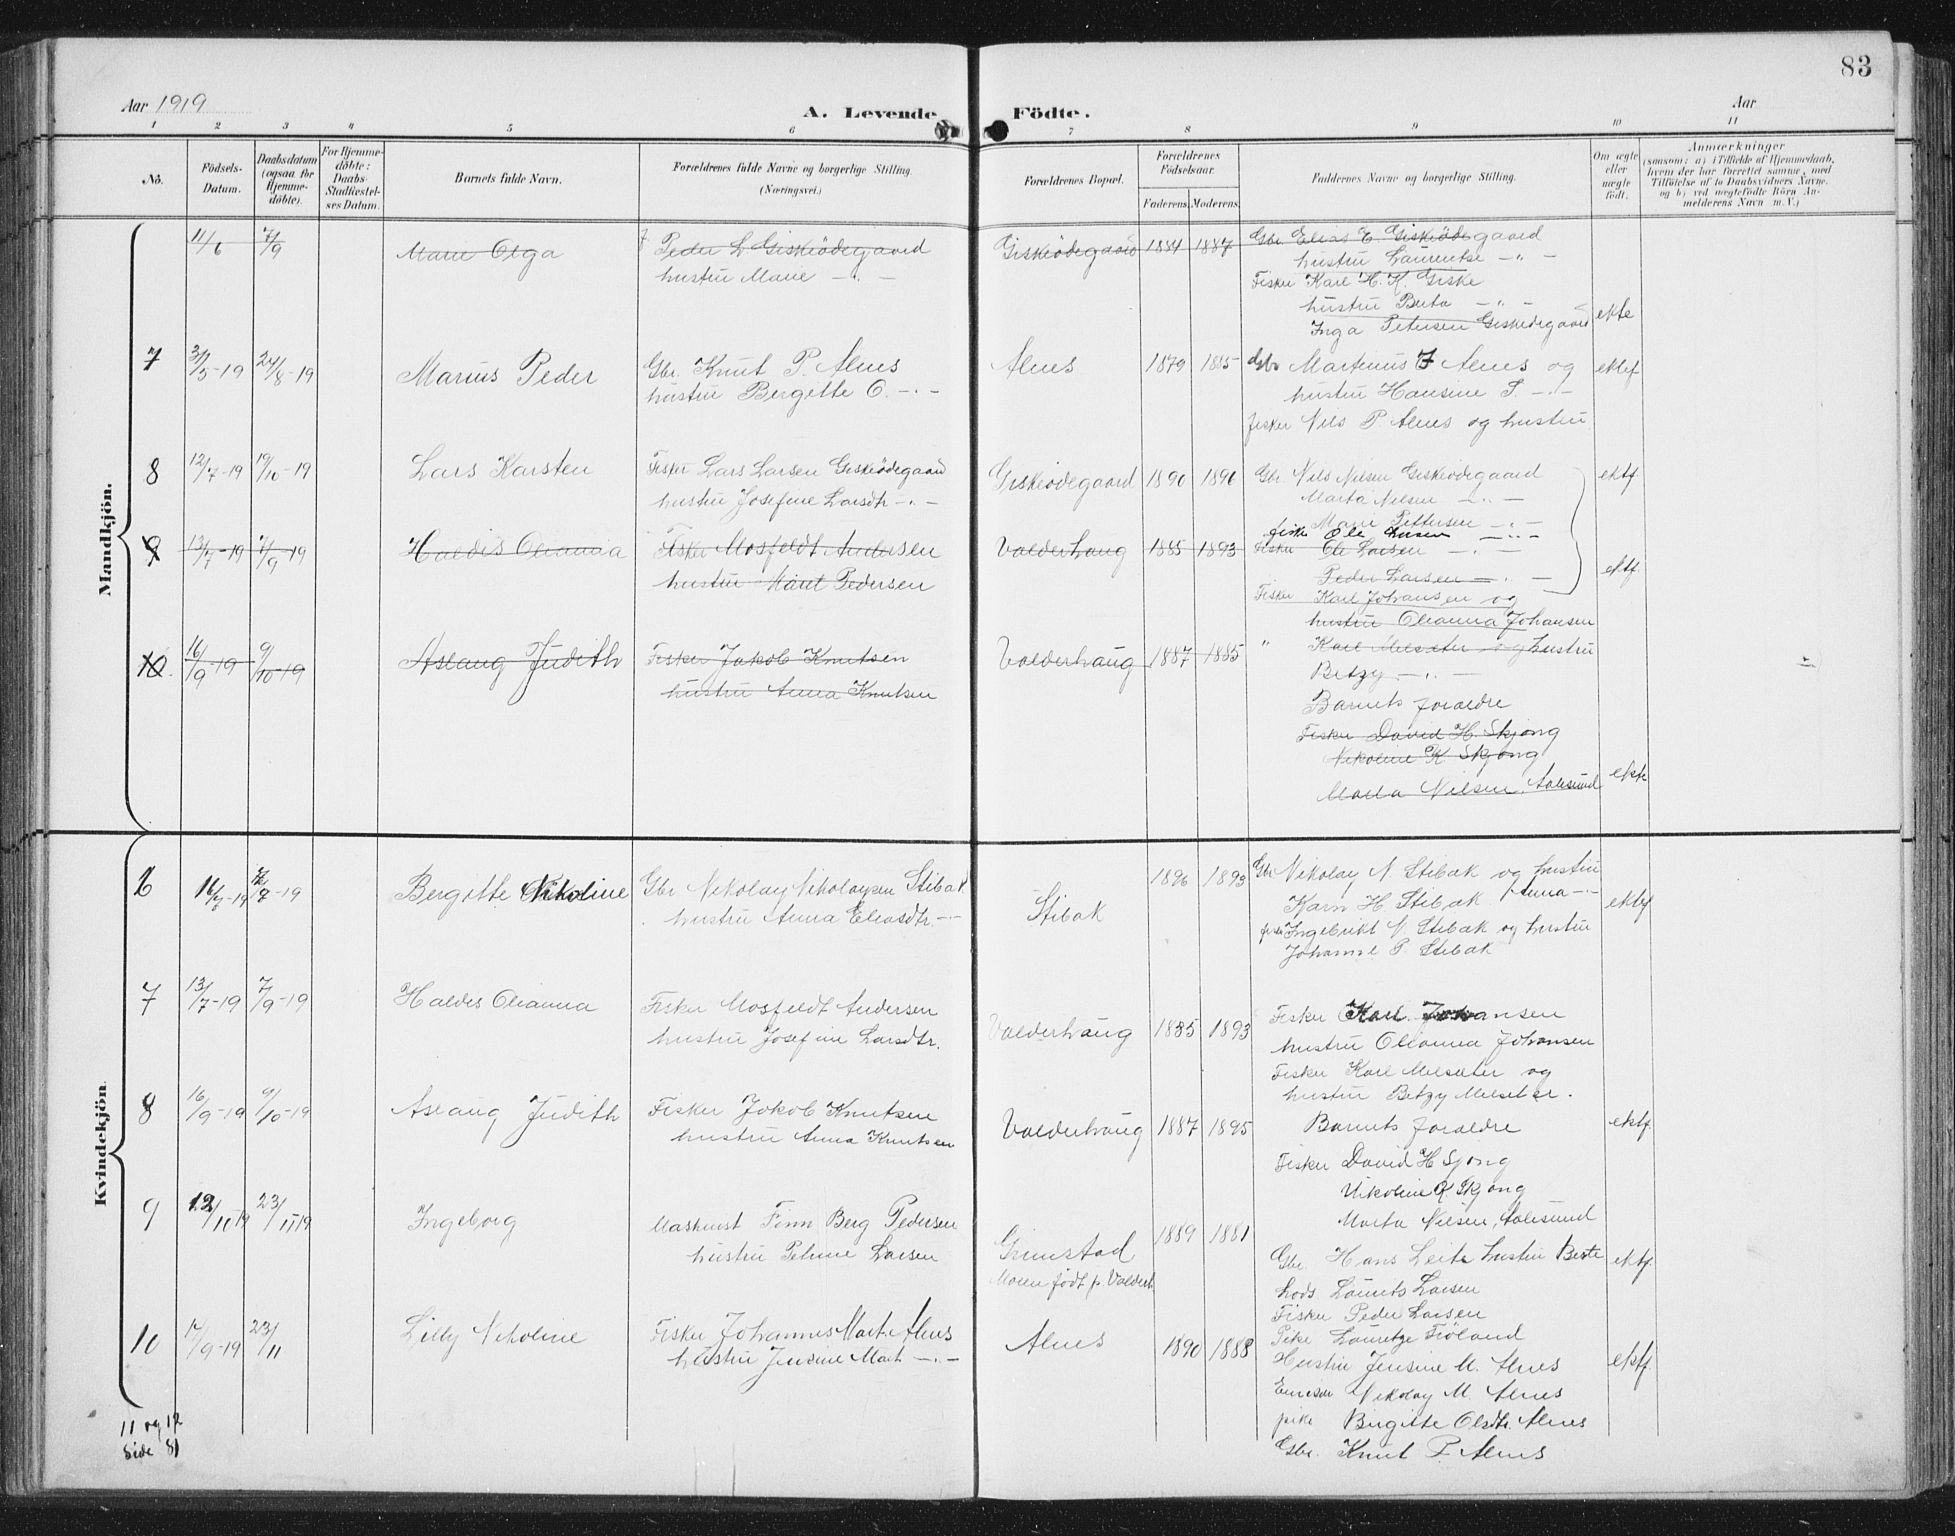 83
Aar 1919
A. Levende Födte.
Aar
1 2 3 4 5 6 7 8 9 10 11
No.
Födsels-
Datum.
Daabsdatum
(ogsaa for
Hjemme-
döbte).
For Hjemme-
döbte:
Daabs-
Stadfæstel-
ses Datum.
Barnets fulde Navn.
Forældrenes fulde Navne og borgerlige Stilling.
(Næringsvei.)
Forældrenes Bopæl.
Forældrenes
Födselsaar.
Faderens. Moderens.
Faddernes Navne og borgerlige Stilling.
Om ægte
eller
uægte
födt.
Anmærkninger
(saasom: a) i Tilfælde af Hjemmedaab,
hvem der har forrettet samme, med
Tilföielse af to Daabsvidners Navne.
og b) ved uægtefödte Börn An-
melderens Navn m. V.)
Mandkjön.
11/6 7/9 Marie Olga Peder L. Giskeödegaard Giskeödegaard 1884 1887 Gbr. Elias E. Giskeödegaard
hustru Marie -"- hustru Laurentse -"-
Fisker Karl H. K. Giske
hustru Berta -"-
Inga Petersen Giskeödegaard ekte
7 31/5-19 24/8-19 Marius Peder Gbr. Knut P. Alnes Alnes 1879 1885 Gbr Martinus J Alnes og ektef
hustru Bergette O. -"- hustru Hansine S. -"-
fisker Nils P. Alnes og hustru
8 12/7-19 19/10-19 Lars Karsten Fisker Lars Larsen Giskeödegaard Giskeödegaard 1890 1896 Gbr. Nils Nilsen Giskeödegaard ektf
hustru Josefine Larsdtr -"- Marta Nilsen -"-
Marie Pettersen -"-
fisker Ole Larsen -"-
9 13/7-19 7/9-19 Haldis Olianna Fisker Mosfeldt Andersen Valderhaug 1885 1893 Fisker Ole Larsen -"-
hustru Pedersen Peder Larsen -"- ektf.
Fisker Karl Johansen og
hustru Olianna Johansen
10. 16/9-19 9/10-19 Aslaug Judith Fisker Jakob Knutsen Valderhaug 1887 1885 " Karl Melsæter og hustru
hustru Anna Knutsen Betzy -"-
Barnets foraldre
Fisker David H. Skjong
Nikoline K Skjong
Marta Nilsen, Aalesund ekte
Kvindekjön.
6 16/7-19 /7-19 Bergitte Nikoline Gbr Nikolay Nikolaysen Stibak Stibak 1896 1893 Gbr Nikolay N Stibak og hustru
hustru Anna Eliasdtr. -"- Karn H Stibak Anna -"- ektef
fisker Ingebrikt N. Stibak og hustru
Johanne P. Stibak
7 13/7-19 7/9-19 Haldis Olianna Fisker Mosfeldt Andersen Valderhaug 1885 1893 Fisker Karl Johansen
hustru Josefine Larsdtr. hustru Olianna Johansen
Fisker Karl Melsæter og
hustru Betzy Melsæter.
8 16/9-19 9/10-19 Aslaug Judith Fisker Jakob Knutsen Valderhaug 1887 1895 Barnets foraldre ektf.
hustru Anna Knutsen Fisker David H Sjong
Nikoline K Skjong
Marta Nilsen, Aalesund
9 12/10-19 23/11 19 Ingeborg Maskinist Finn Berg Pedersen Grimstad 1889 1881
hustru Petrine Larsen Moren født p. Valderh. Gbr. Hans Leite hustru Berte ektf.
Lods Laurits Larsen
Fisker Peder Larsen
Pike Lauretze Fröland
10 17/9-19 23/11 Lilly Nikoline Fisker Johannes Mart. Alnes Alnes 1890 1888 Hustru Jensine M. Alnes ektf.
hustru Jensine Mart -"- Nikolay M Alnes
pike Birgitte Olsdtr. Alnes
Gbr. Knut P. Alnes
11 og 12
side 81